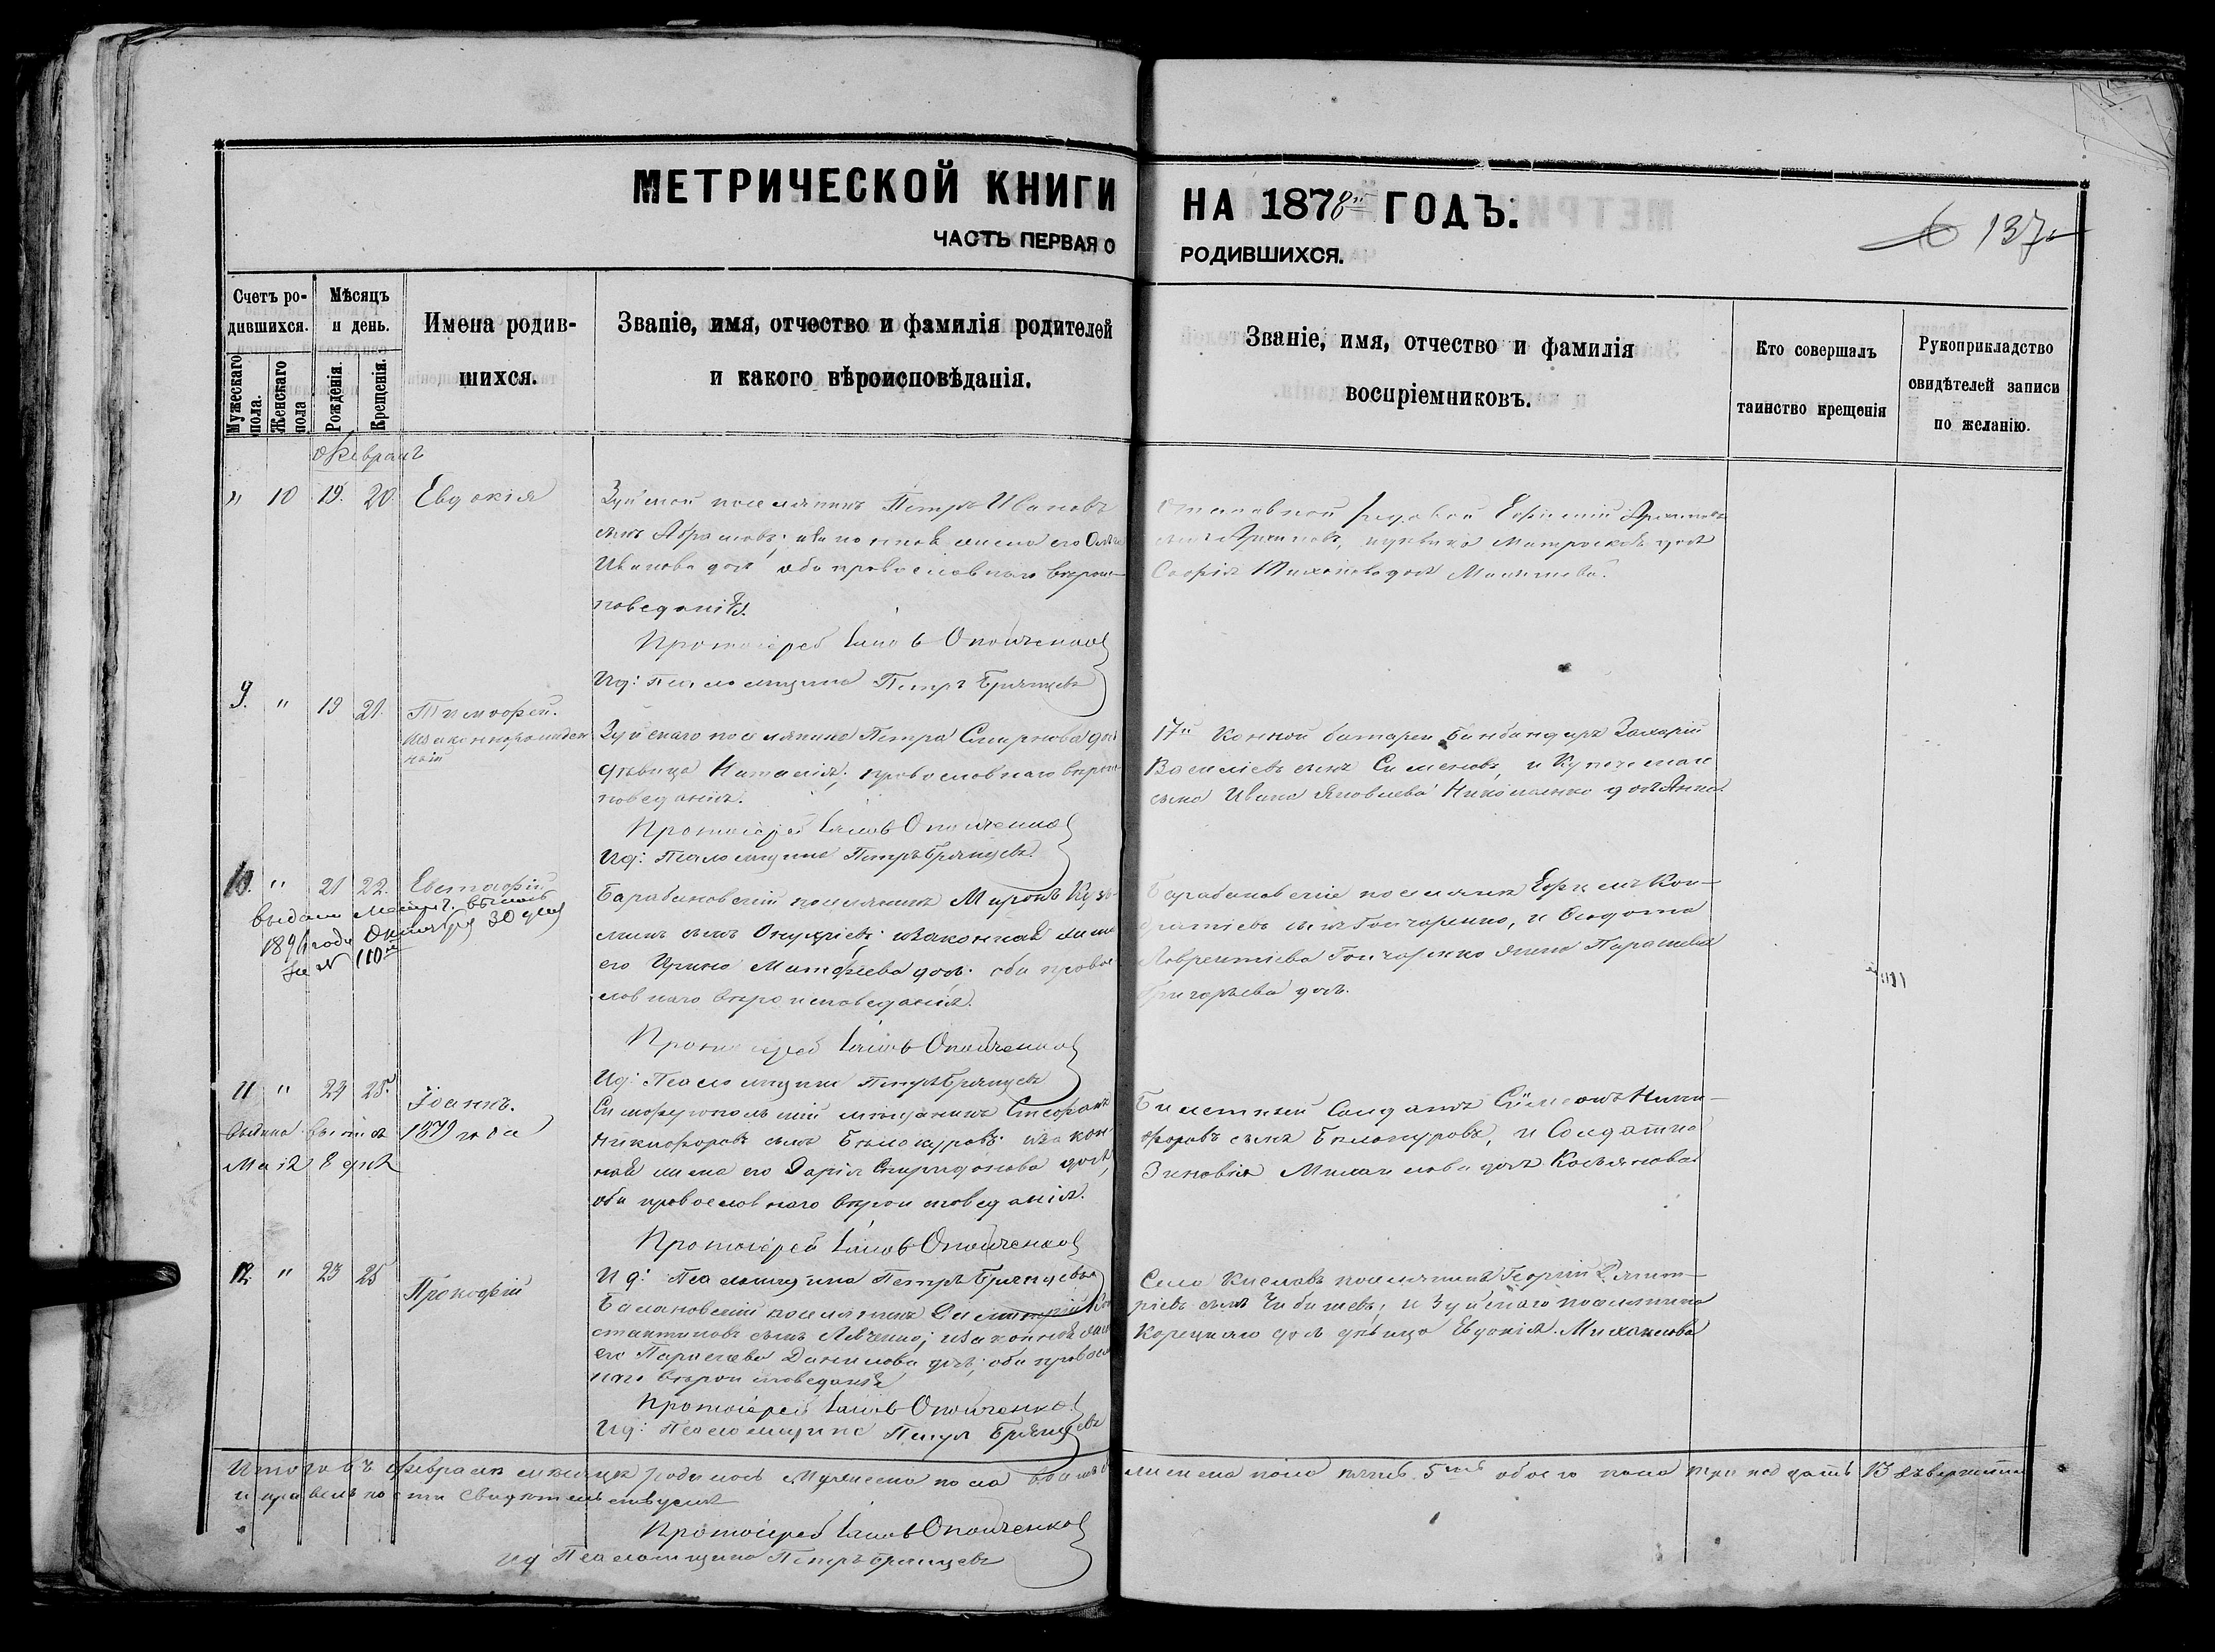 МЕТРИЧЕСКОЙ КНИГИ НА 1878й ГОДЪ.
ЧАСТЬ ПЕРВАЯ О РОДИВШИХСЯ.
137
Счетъ ро-
дившихся.
Мужескаго пола.
Женскаго пола
Мѣсяцъ
и день.
Рожденія.
Крещенія.
Имена родив-
шихся.
Званіе, имя, отчество и фамилія родителей
и какого вѣроисповѣданія.
Званіе, имя, отчество и фамилія
воспріемниковъ.
Кто совершалъ
таинство крещенія
Рукоприкладство
свидѣтелей записи
по желанію.
Февраль
" 10 19. 20. Евдокія
Зуйской поселянинъ Петръ Ивановъ
сынъ Абрамовъ; законная жена его
Иванова дочь оба православнаго вѣроис-
поведанія.
Протоіерей Іаковъ
Ид: Псаломщика Петръ Брянцевъ
Отставной рядовой
дочь
Софія дочь
9. " 19 21. Тимофей.
незаконнорожден
ный
Зуйскаго поселянина Петра Смирнова дочь
дѣвица Наталія; православнаго вѣроис-
поведанія.
Протоіерей Іаковъ
Ид: Псаломщика Петръ Брянцевъ.
17й Конной батареи Бомбандиръ Захарій
Василіевъ сынъ Сименовъ, и
сына Ивана Яковлева Николаенко дочь Анна.
10. " 21 22. Евстафій
Выдана Метрич. выпись
189 года Октября 30 дня
за № 110м
Барабановскій поселянинъ Миронъ Кузь-
минъ сынъ Онуфріевъ; законная жена
его Ирина Матфіева дочь; оба право-
славнаго вѣроисповеданія.
Протоіерей Іаковъ
Ид: Псаломщика Петръ Брянцевъ
Барабановскіе поселяне Ефимъ Кон-
дратіевъ сынъ Гончаренко, и Федота
Лаврентіева Гончаренко жена Параскева
Григорьева дочь.
11 " 24 25. Іоаннъ.
Выдана выпись 1879 года
Маія 8 дня
Симферопольскій мѣщанинъ Стефанъ
Никифоровъ сынъ Бѣлокуровъ; закон-
ная жена его Дарія Спиридонова дочь,
оба православнаго вѣроисповеданія.
Протоіерей Іаковъ
Билетный Солдатъ Сѵмеонъ Ники-
форовъ сынъ Бѣлокуровъ, и Солдатка
Зиновія Михаилова дочь
12. " 23 25 Прокофій
Ид: Псаломщика Петръ Брянцевъ
поселянинъ Димитрій Кон
стантиновъ сынъ; законная жена
его Параскева Данилова дочь; оба православ
наго вѣроисповеданія
Протоіерей Іаковъ
Ид: Псаломщика Петръ Брянцевъ
Села поселянинъ Георгій Димит-
ріевъ сынъ Чибишевъ; и Зуйскаго поселянина
Корецкаго дочь дѣвица Евдокія Михаилова
Итого въ Февралѣ мѣсяцѣ родилось Мужеска пола женска пола пять 5ть обоего пола тринадцать 13
и правильности свидѣтельствуемъ
Протоіерей Іаковъ
Ид Псаломщика Петръ Брянцевъ